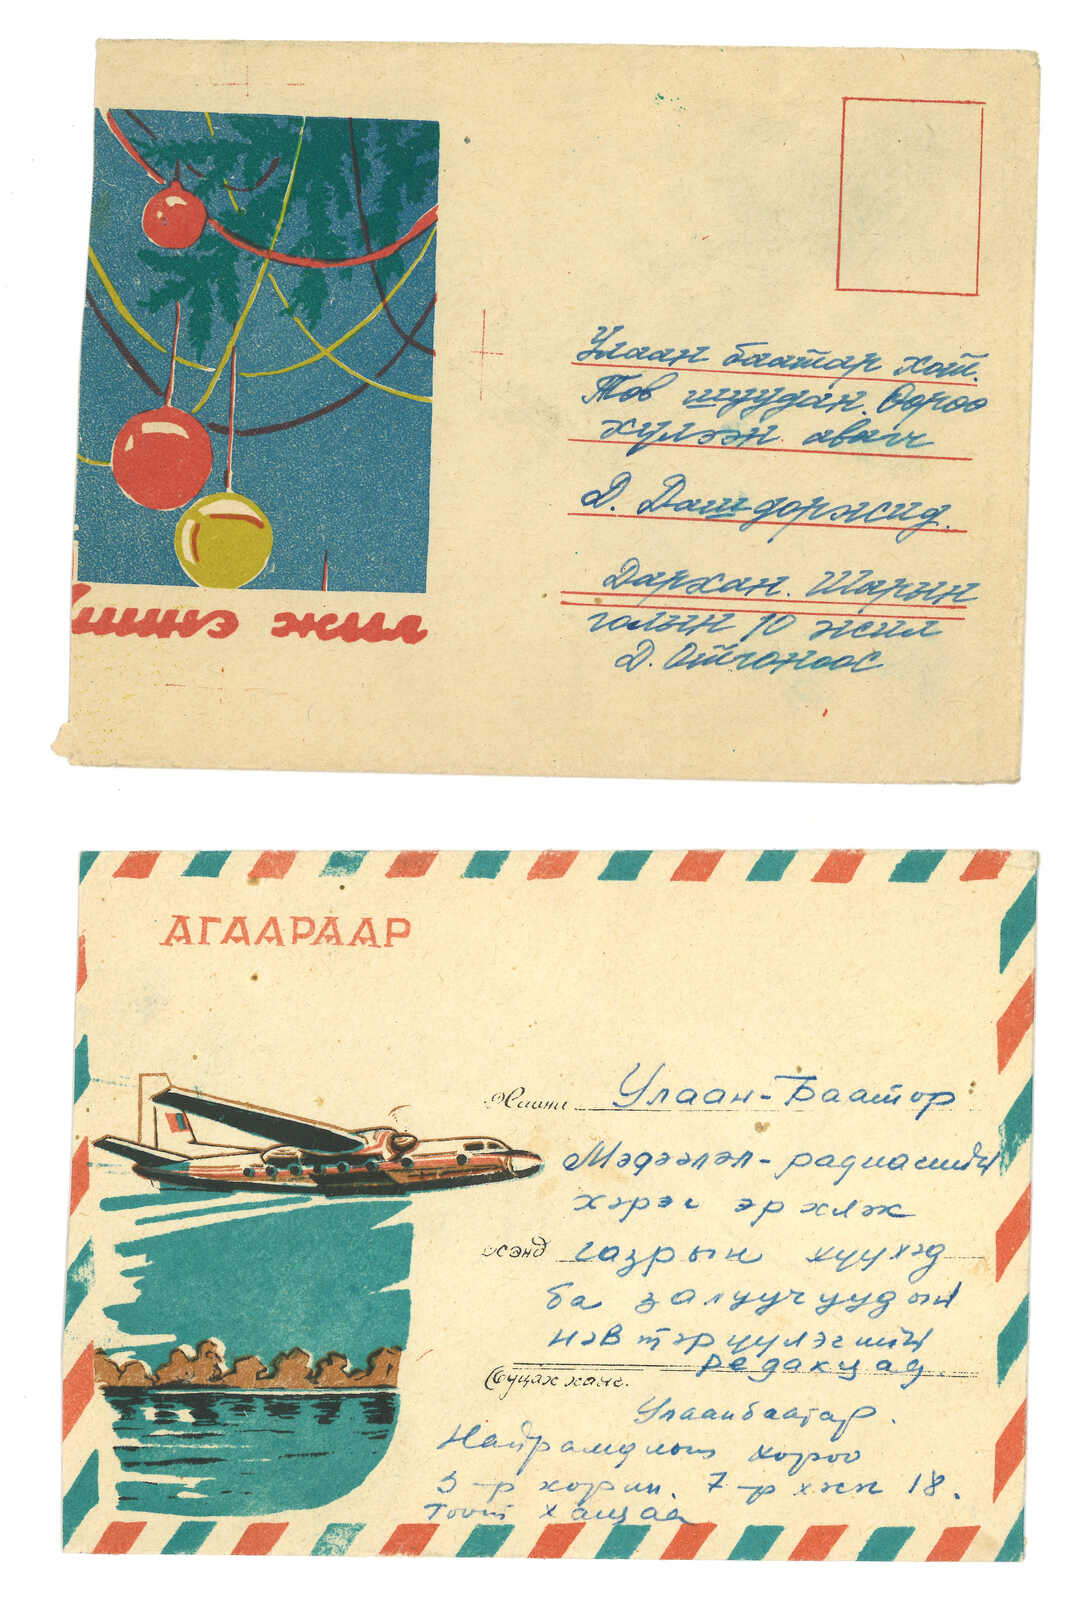 Улаан баатар хот.
Төв шуудан. Өөрөө
хүлээн авагч
Д. Дашдоржид.
Дархан. Шарын
голын 10 жил
Д. Отгоноос
шинэ жил
АГААРААР
Хаана Улаан-Баатор
Мэдээлэл-радиогийн
хэрэг эрхлэх
Хэнд газрын хүүхэд
ба залуучуудын
нэвтэрүүлэгийн
редакцад.
Буцах хаяг.
Улаанбаатар.
Найрамдлын хороо
3-р хорин. 7-р хэсэг 18.
тоот хашаа